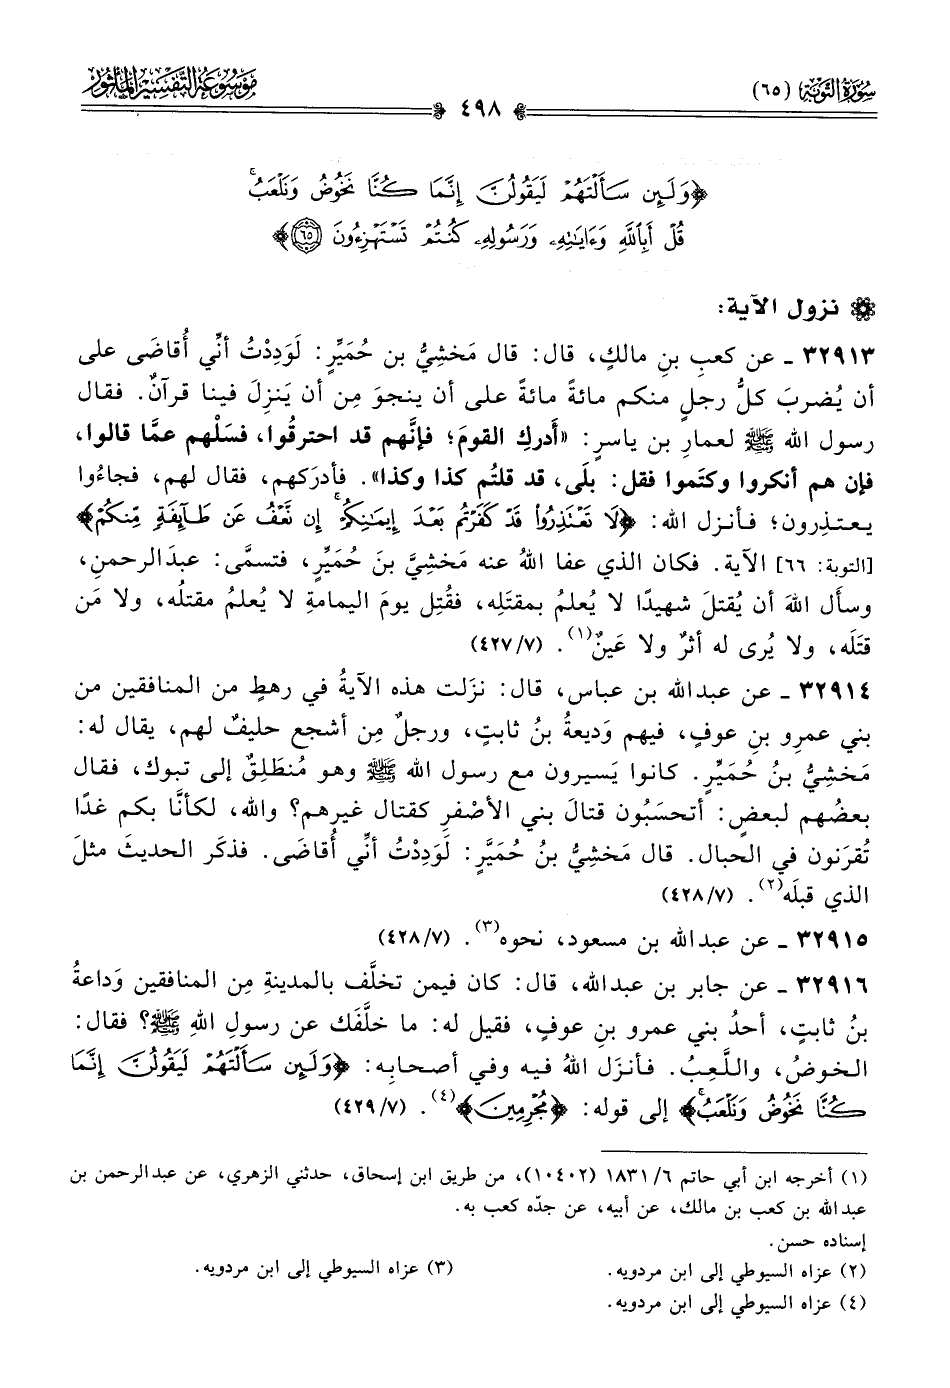 سُورَةُ التَّوْبَة (٦٥)
٤٩٨
مَوْسُوعَةُ التَّفْسِيرِ المَأْثُور
﴿وَلَئِن سَأَلْتَهُمْ لَيَقُولُنَّ إِنَّمَا كُنَّا نَخُوضُ وَنَلْعَبُۚ
قُلْ أَبِاللَّهِ وَءَايَٰتِهِۦ وَرَسُولِهِۦ كُنتُمْ تَسْتَهْزِءُونَ ٦٥﴾
نزول الآية:
٣٢٩١٣ ـ عن كعبِ بنِ مالكٍ، قال: قال مَخشِيُّ بن حُمَيِّرٍ: لَوَدِدْتُ أنِّي أُقاضَى على
أن يُضربَ كلُّ رجلٍ منكم مائةً مائةً على أن ينجوَ مِن أن يَنزِلَ فينا قرآنٌ. فقال
رسول الله ﷺ لعمارِ بن ياسرٍ: «أَدركِ القومَ؛ فإنَّهم قد احترقُوا، فسَلْهم عمَّا قالوا،
فإن هم أنكروا وكتَموا فقل: بلَى، قد قلتُم كذا وكذا». فأدركَهم، فقال لهم، فجاءُوا
يعتذِرون؛ فأنزل الله: ﴿لَا تَعْتَذِرُوا۟ قَدْ كَفَرْتُم بَعْدَ إِيمَٰنِكُمْۚ إِن نَّعْفُ عَن طَآئِفَةٍ مِّنكُمْ﴾
[التوبة: ٦٦] الآية. فكان الذي عفا اللهُ عنه مَخشِيَّ بنَ حُمَيِّرٍ، فتسمَّى: عبدَالرحمنِ،
وسأَل اللهَ أن يُقتلَ شهيدًا لا يُعلمُ بمقتَلِه، فقُتِل يومَ اليمامةِ لا يُعلمُ مقتلُه، ولا مَن
قتَلَه، ولا يُرى له أثرٌ ولا عَينٌ(١). (٤٢٧/٧)
٣٢٩١٤ ـ عن عبدالله بن عباس، قال: نزَلت هذه الآيةُ في رهطٍ من المنافقين من
بني عمرِو بنِ عوفٍ، فيهم وَديعةُ بنُ ثابتٍ، ورجلٌ مِن أشجع حليفٌ لهم، يقال له:
مَخشِيُّ بنُ حُمَيِّرٍ. كانوا يَسيرون مع رسول الله ﷺ وهو مُنطَلِقٌ إلى تبوك، فقال
بعضُهم لبعضٍ: أتحسَبُون قتالَ بني الأصْفرِ كقتال غيرهم؟ والله، لكأنَّا بكم غدًا
تُقرَنون في الحبال. قال مَخشِيُّ بنُ حُمَيَّرٍ: لَوَدِدْتُ أنِّي أُقاضَى. فذكَر الحديثَ مثلَ
الذي قبلَه(٢). (٤٢٨/٧)
٣٢٩١٥ ـ عن عبدالله بن مسعود، نحوه(٣). (٤٢٨/٧)
٣٢٩١٦ ـ عن جابر بن عبدالله، قال: كان فيمن تخلَّف بالمدينةِ مِن المنافقين وَداعةُ
بنُ ثابتٍ، أحدُ بني عمرِو بنِ عوفٍ، فقيل له: ما خلَّفَك عن رسولِ اللهِ ﷺ؟ فقال:
الخوضُ، واللَّعِبُ. فأنزَل اللهُ فيه وفي أصحابِه: ﴿وَلَئِن سَأَلْتَهُمْ لَيَقُولُنَّ إِنَّمَا
كُنَّا نَخُوضُ وَنَلْعَبُۚ﴾ إلى قوله: ﴿مُجْرِمِينَ﴾(٤). (٤٢٩/٧)
(١) أخرجه ابن أبي حاتم ١٨٣١/٦ (١٠٤٠٢)، من طريق ابن إسحاق، حدثني الزهري، عن عبدالرحمن بن
عبدالله بن كعب بن مالك، عن أبيه، عن جدّه كعب به.
إسناده حسن.
(٢) عزاه السيوطي إلى ابن مردويه. (٣) عزاه السيوطي إلى ابن مردويه.
(٤) عزاه السيوطي إلى ابن مردويه.